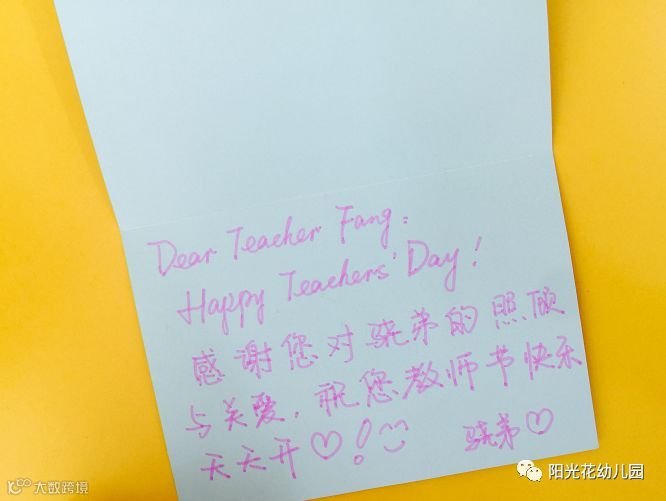 Dear Teacher Fang:
Happy Teachers' Day!
感谢您对骁弟的照顾
与关爱，祝您教师节快乐
天天开♡！ 骁弟♡
阳光花幼儿园
大数跨境